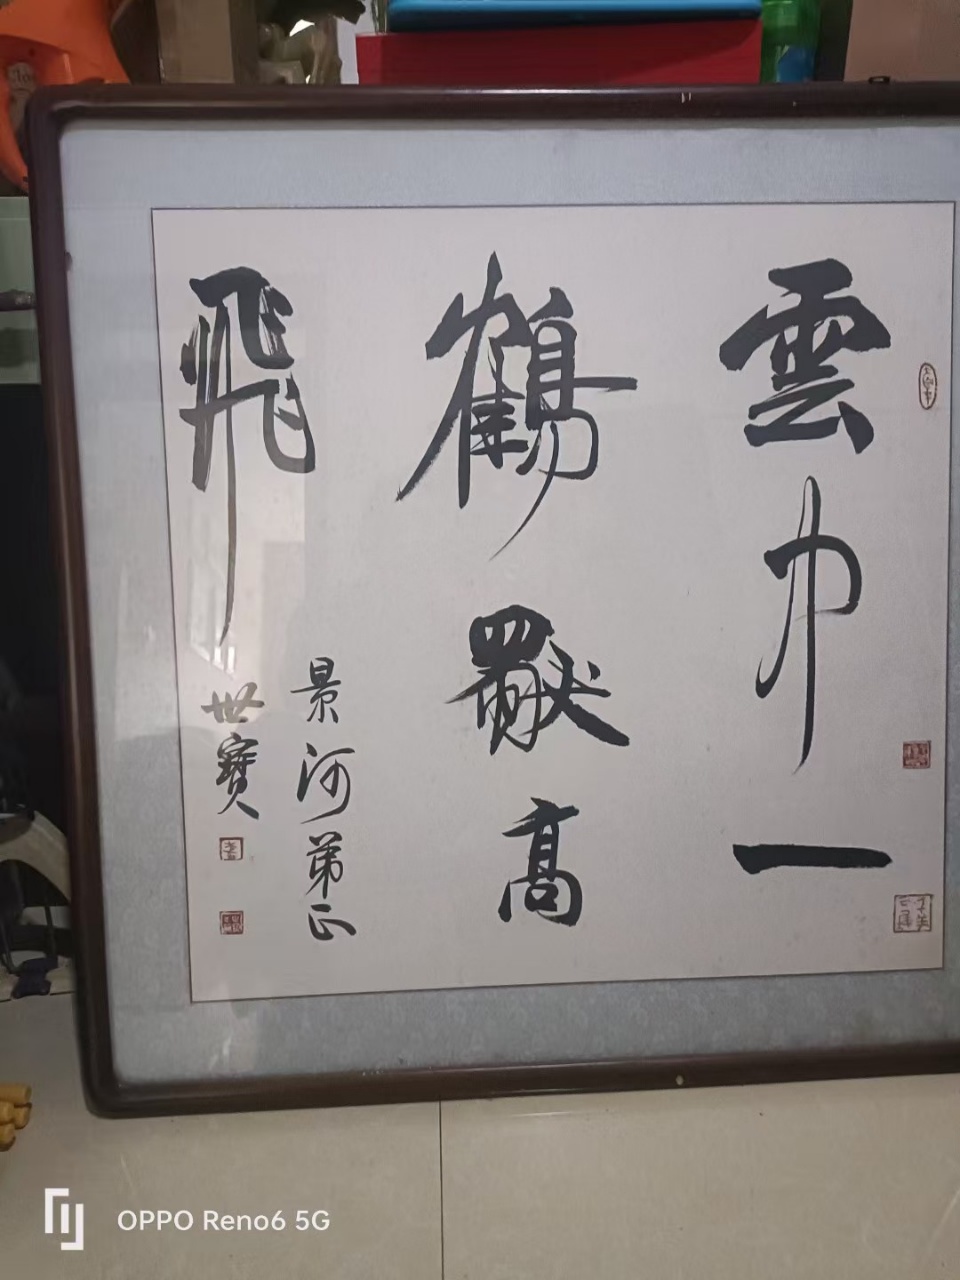 雲中一
鶴獨高
飛
景河弟正
世寶
OPPO Reno6 5G